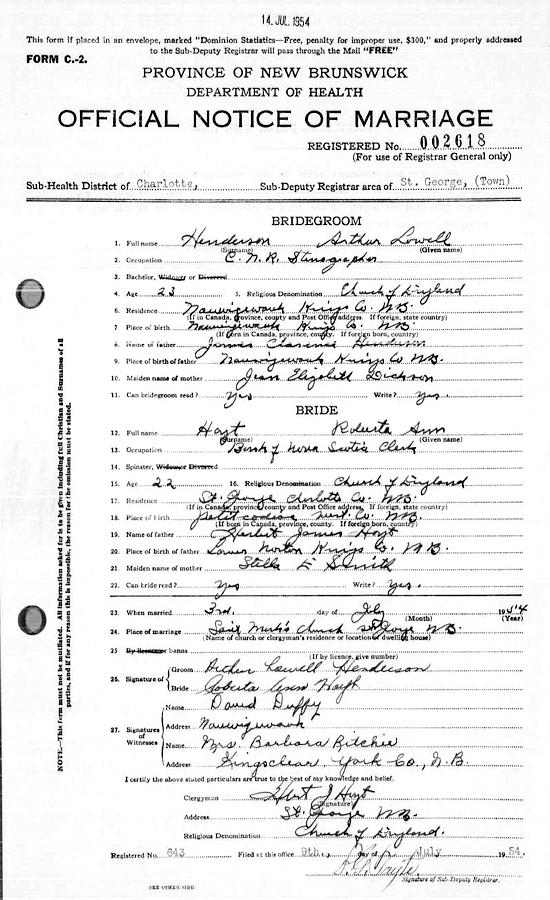 14. JUL 1954
This form if placed in an envelope, marked "Dominion Statistics—Free, penalty for improper use, $300," and properly addressed
to the Sub-Deputy Registrar will pass through the Mail "FREE"
FORM C.-2.
PROVINCE OF NEW BRUNSWICK
DEPARTMENT OF HEALTH
OFFICIAL NOTICE OF MARRIAGE
REGISTERED No. 002618
(For use of Registrar General only)
Sub-Health District of Charlotte, Sub-Deputy Registrar area of St. George, (Town)
BRIDEGROOM
1. Full name Henderson Arthur Lowell
(Surname) (Given name)
2. Occupation C. N. R. Stenographer
3. Bachelor, Widower or Divorced
4. Age 23 5. Religious Denomination Church of England
6. Residence Nauwigewauk Kings Co. NB
(If in Canada, province, county and Post Office address. If foreign, state country)
7. Place of birth Nauwigewauk Kings Co. NB.
(If born in Canada, province, county. If foreign born, country)
8. Name of father James Clarence Henderson
9. Place of birth of father Nauwigewauk Kings Co NB.
10. Maiden name of mother Jean Elizabeth Dickson
11. Can bridegroom read? Yes Write? Yes.
BRIDE
12. Full name Hoyt Roberta Ann
(Surname) (Given name)
13. Occupation Bank of Nova Scotia Clerk
14. Spinster, Widow or Divorced
15. Age 22 16. Religious Denomination Church of England
17. Residence St. George Charlotte Co. NB.
(If in Canada, province, county and Post Office address. If foreign, state country)
18. Place of birth Petitcodiac West. Co. NB.
(If born in Canada, province, county. If foreign born, country)
19. Name of father Herbert James Hoyt
20. Place of birth of father Lower Norton Kings Co. NB.
21. Maiden name of mother Stella E Smith
22. Can bride read? Yes Write? Yes.
23. When married 3rd. day of July 19
(Month) (Year)
24. Place of marriage Saint Mark's Church St George NB
(Name of church or clergyman's residence or location of dwelling house)
25 By licence or banns
(If by licence, give number)
26. Signature of
Groom Arthur Lowell Henderson
Bride Roberta Ann Hoyt
27. Signatures of Witnesses
Name David Duffy
Address Nauwigewauk
Name Mrs. Barbara Ritchie
Address Kingsclear, York Co., N.B.
I certify the above stated particulars are true to the best of my knowledge and belief.
Clergyman J Hoyt
(Signature)
Address St. George NB
Religious Denomination Church of England.
Registered No. 643 Filed at this office 9th, day of July 1954.
Signature of Sub-Deputy Registrar.
SEE OTHER SIDE
NOTE.—This form must not be mutilated. All information asked for is to be given including full Christian and Surnames of all
parties, and if for any reason this is impossible, the reason for the omission must be stated.